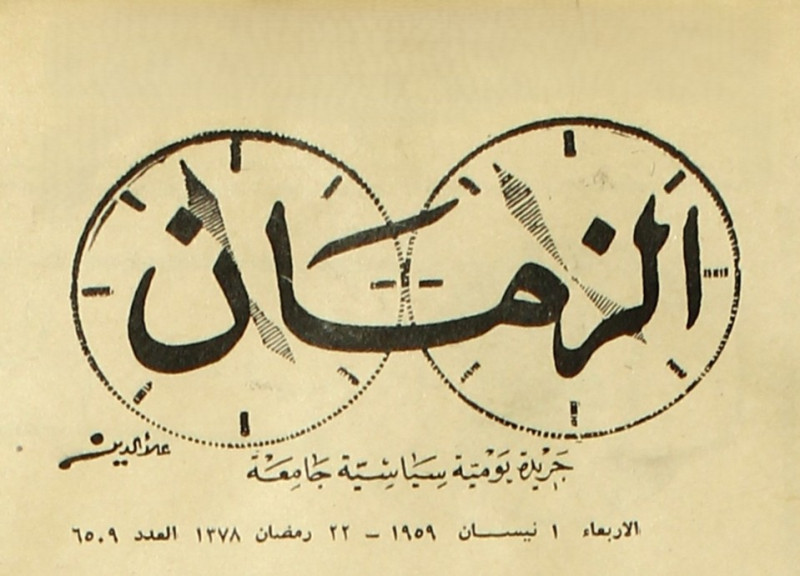 الزمان
علاء الدين
جريدة يومية سياسية جامعة
الاربعاء ١ نيسان ١٩٥٩ - ٢٢ رمضان ١٣٧٨ العدد ٦٥٠٩